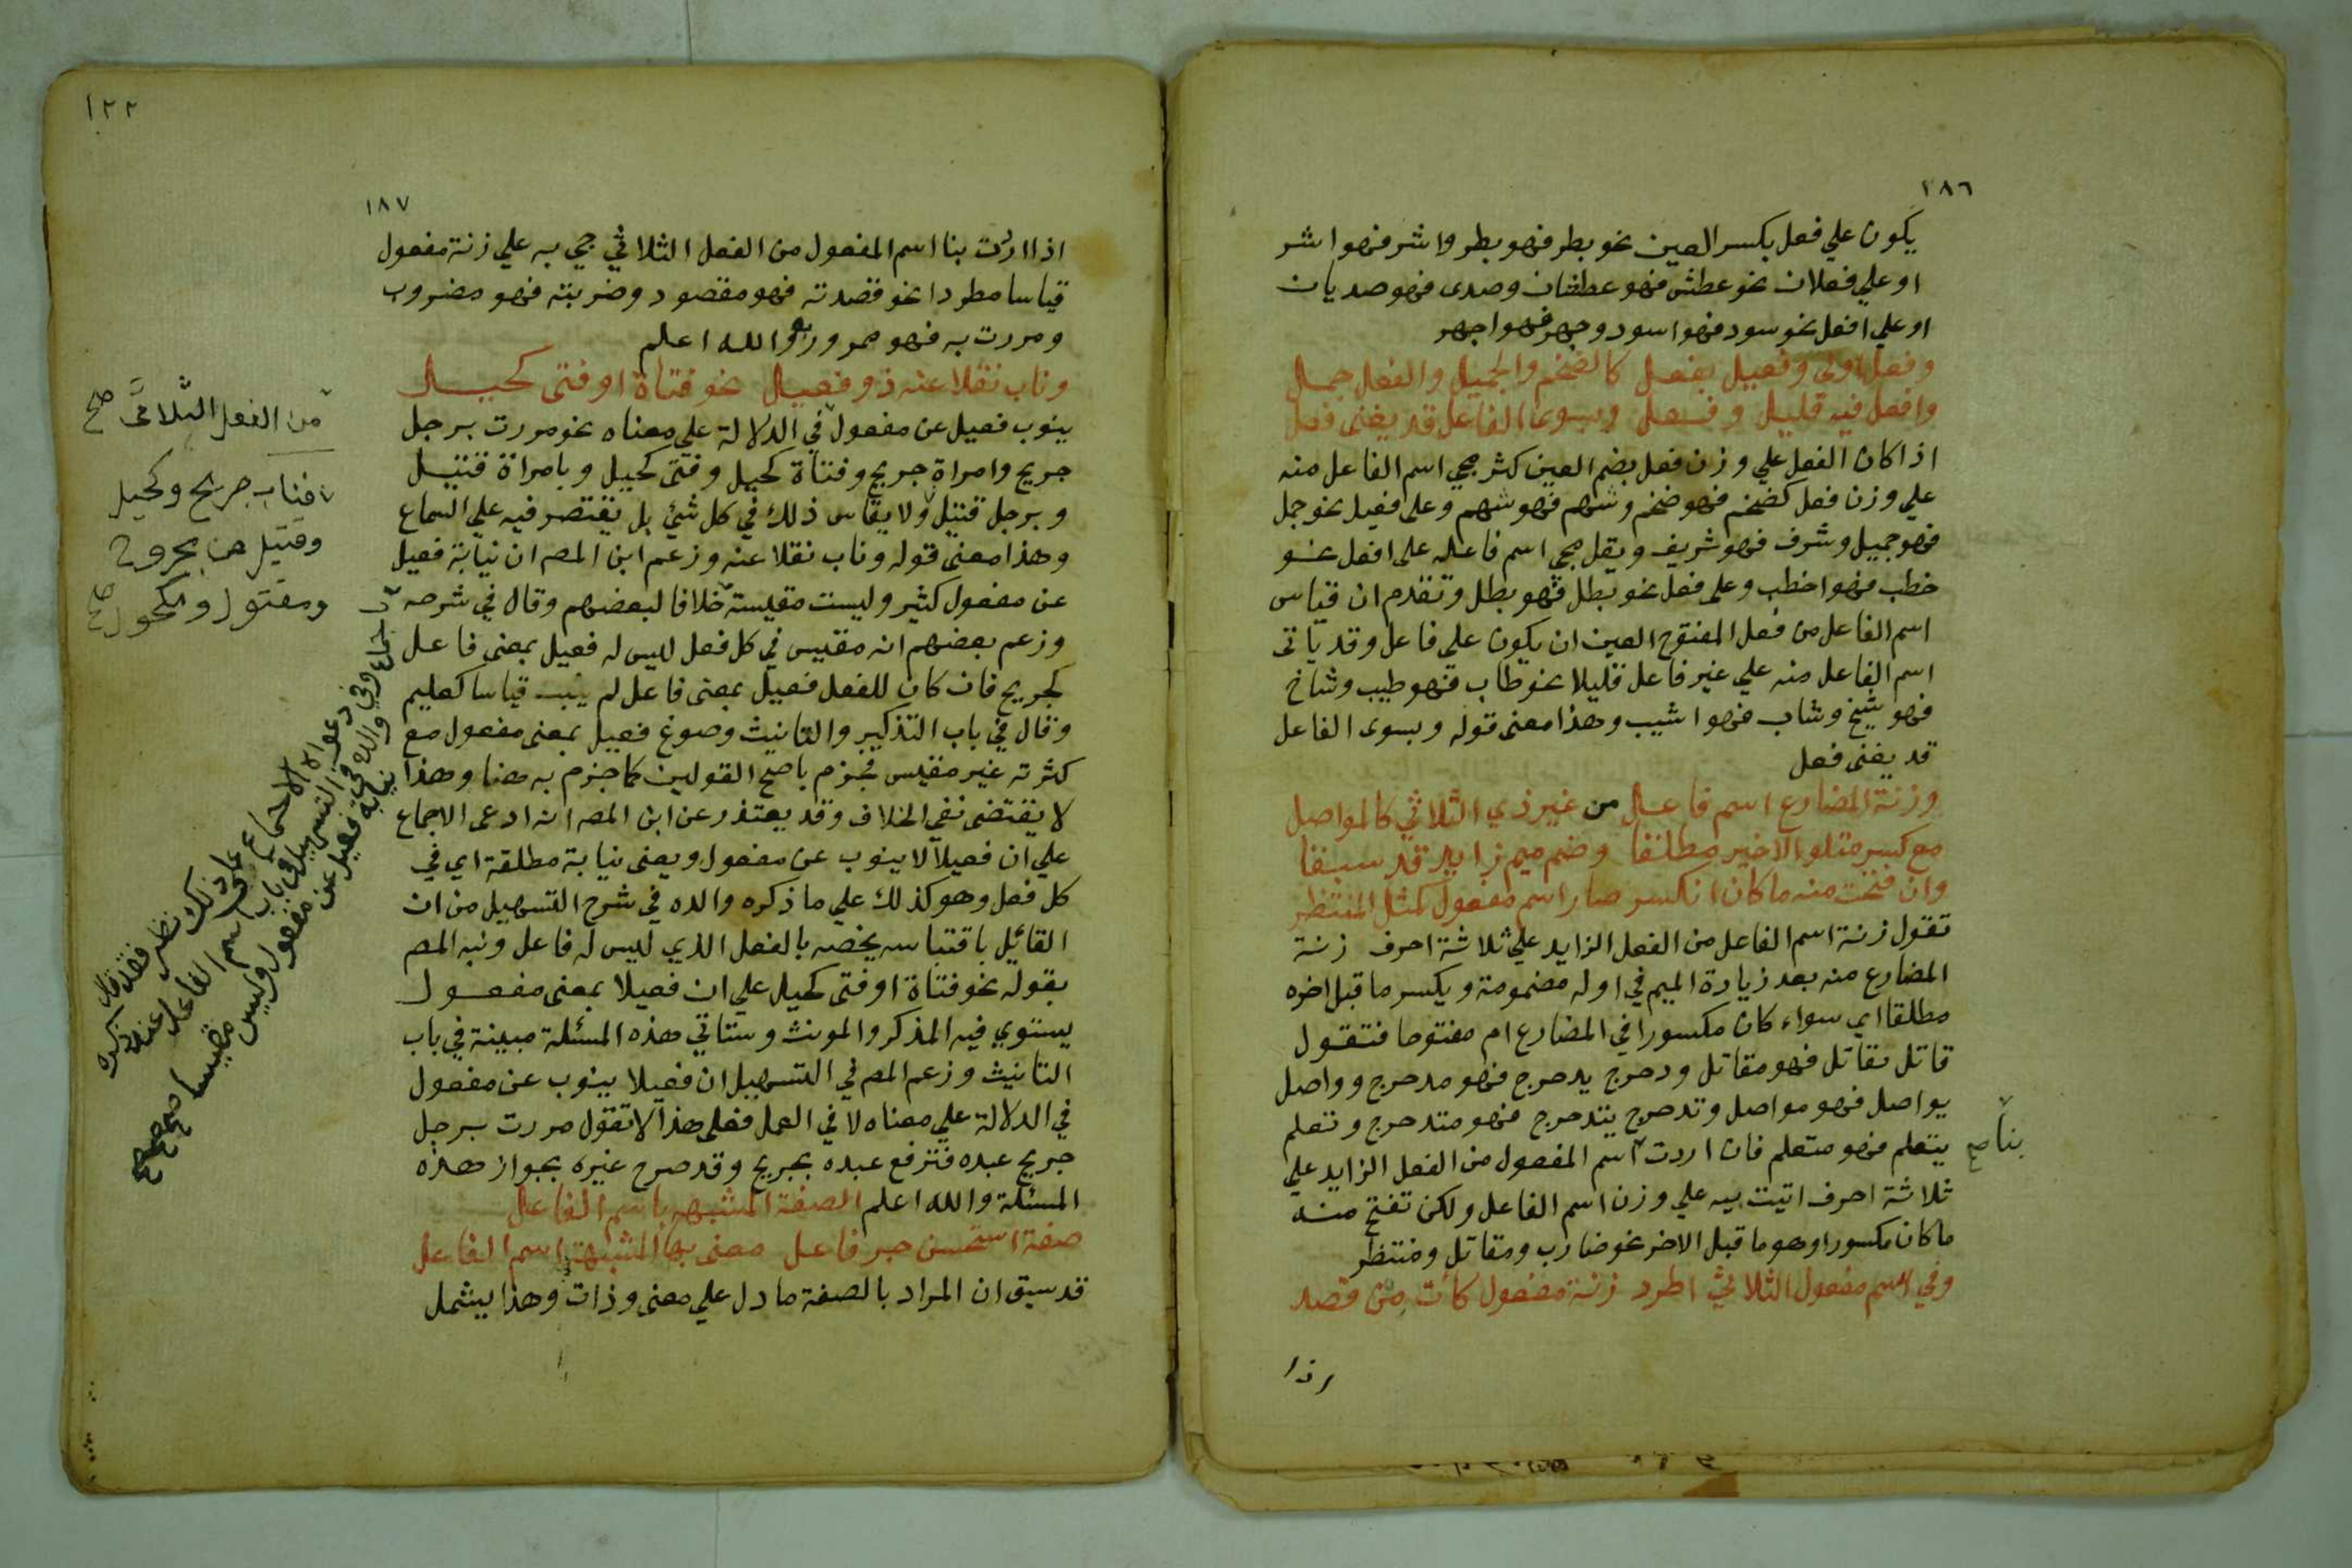 ١٨٦
يكون علي فعل بكسر العين نحو بطر فهو بطر واشر فهو اشر
او علي فعلان نحو عطش فهو عطشان وصدى فهو صديان
او علي افعل نحو سود فهو اسود وجهر فهو اجهر
وفعل اولى وفعيل بفعل كالضخم والجميل والفعل جمل
وافعل فيه قليل وفعل وبسوى الفاعل قد يغنى فعل
اذا كان الفعل علي وزن فعل بضم العين كثر مجي اسم الفاعل منه
علي وزن فعل كضخم فهو ضخم وشهم فهو شهم وعلى فعيل نحو جمل
فهو جميل وشرف فهو شريف ويقل مجى اسم فاعله على افعل نحو
خطب فهو اخطب وعلى فعل نحو بطل فهو بطل وتقدم ان قياس
اسم الفاعل من فعل المفتوح العين ان يكون على فاعل وقد ياتى
اسم الفاعل منه علي غير فاعل قليلا نحو طاب فهو طيب وشاخ
فهو شيخ وشاب فهو اشيب وهذا معنى قوله وبسوى الفاعل
قد يغنى فعل
وزنة المضارع اسم فاعل من غير ذي الثلاثي كالمواصل
مع كسر متلو الاخير مطلقا وضم ميم زايد قد سبقا
وان فتحت منه ما كان انكسر صار اسم مفعول كمثل المنتظر
تقول زنة اسم الفاعل من الفعل الزايد علي ثلاثة احرف زنة
المضارع منه بعد زيادة الميم في اوله مضمومة ويكسر ما قبل اخره
مطلقا اي سواء كان مكسورا في المضارع ام مفتوحا فتقول
قاتل يقاتل فهو مقاتل ودحرج يدحرج فهو مدحرج وواصل
يواصل فهو مواصل وتدحرج يتدحرج فهو متدحرج وتعلم
يتعلم فهو متعلم فان اردت اسم المفعول من الفعل الزايد علي
بنا صح
ثلاثة احرف اتيت به علي وزن اسم الفاعل ولكن تفتح منه
ما كان مكسورا وهو ما قبل الاخر نحو ضارب ومقاتل ومنتظر
وفي اسم مفعول الثلاثي اطرد زنة مفعول كات من قصد
اذا
١٢٢
١٨٧
اذا اردت بنا اسم المفعول من الفعل الثلاثي جي به علي زنة مفعول
قياسا مطردا نحو قصدته فهو مقصود وضربته فهو مضروب
ومررت به فهو ممرور به والله اعلم
وناب نقلا عنه ذو فعيل نحو فتاة او فتى كحيل
ينوب فعيل عن مفعول في الدلالة علي معناه نحو مررت برجل
جريح وامراة جريح وفتاة كحيل وفتى كحيل وبامراة قتيل
وبرجل قتيل ولا يقاس ذلك في كل شئ بل يقتصر فيه علي السماع
وهذا معنى قوله وناب نقلا عنه وزعم ابن المصـ ان نيابة فعيل
عن مفعول كثير وليست مقيسة خلافا لبعضهم وقال في شرحه
وزعم بعضهم انه مقيس في كل فعل ليس له فعيل بمعنى فاعل
كجريح فان كان للفعل فعيل بمعنى فاعل لم ينب قياسا كعليم
وقال في باب التذكير والتانيث وصوغ فعيل بمعنى مفعول مع
كثرته غير مقيس فجزم باصح القولين كما جزم به هنا وهذا
لا يقتضى نفي الخلاف وقد يعتذر عن ابن المصـ انه ادعى الاجماع
علي ان فعيلا لا ينوب عن مفعول ويعنى نيابة مطلقة اي في
كل فعل وهو كذلك علي ما ذكره والده في شرح التسهيل من ان
القائيل باقتباسه يخصه بالفعل الذي ليس له فاعل ونبه المصـ
بقوله نحو فتاة او فتى كحيل علي ان فعيلا بمعنى مفعول
يستوي فيه المذكر والمونث وستاتي هذه المسئلة مبينة في باب
التانيث وزعم المصـ في التسهيل ان فعيلا ينوب عن مفعول
في الدلالة علي معناه لا في العمل فعلى هذا لا تقول مررت برجل
جريح عبده فترفع عبده بجريح وقد صرح غيره بجواز هذه
المسئلة والله اعلم الصفة المشبهه باسم الفاعل
صفة استحسن جر فاعل معنى بها المشبهة اسم الفاعل
قد سبق ان المراد بالصفة ما دل علي معنى وذات وهذا يشمل
من الفعل الثلاثى صح
فناب جريح وكحيل
وقتيل عن مجروح
ومقتول ومكحول صح
دعواه الاجماع على ذلك نظر فقد قال
والده في التسهيل في باب اسم الفاعل عند ذكره
نيابة فعيل عن مفعول وليس مقيسا صح